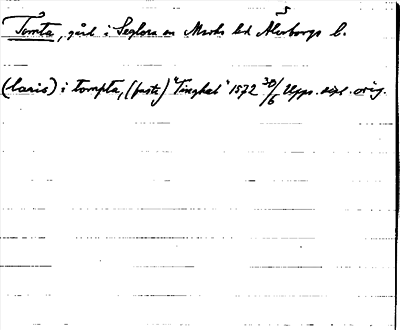 Tomta, gård i Seglora sn Marks hd Älvsborgs l.
(laris) i tompta, (fasty) "Tinghal" 1572 30/6 Upps. dipl. orig.